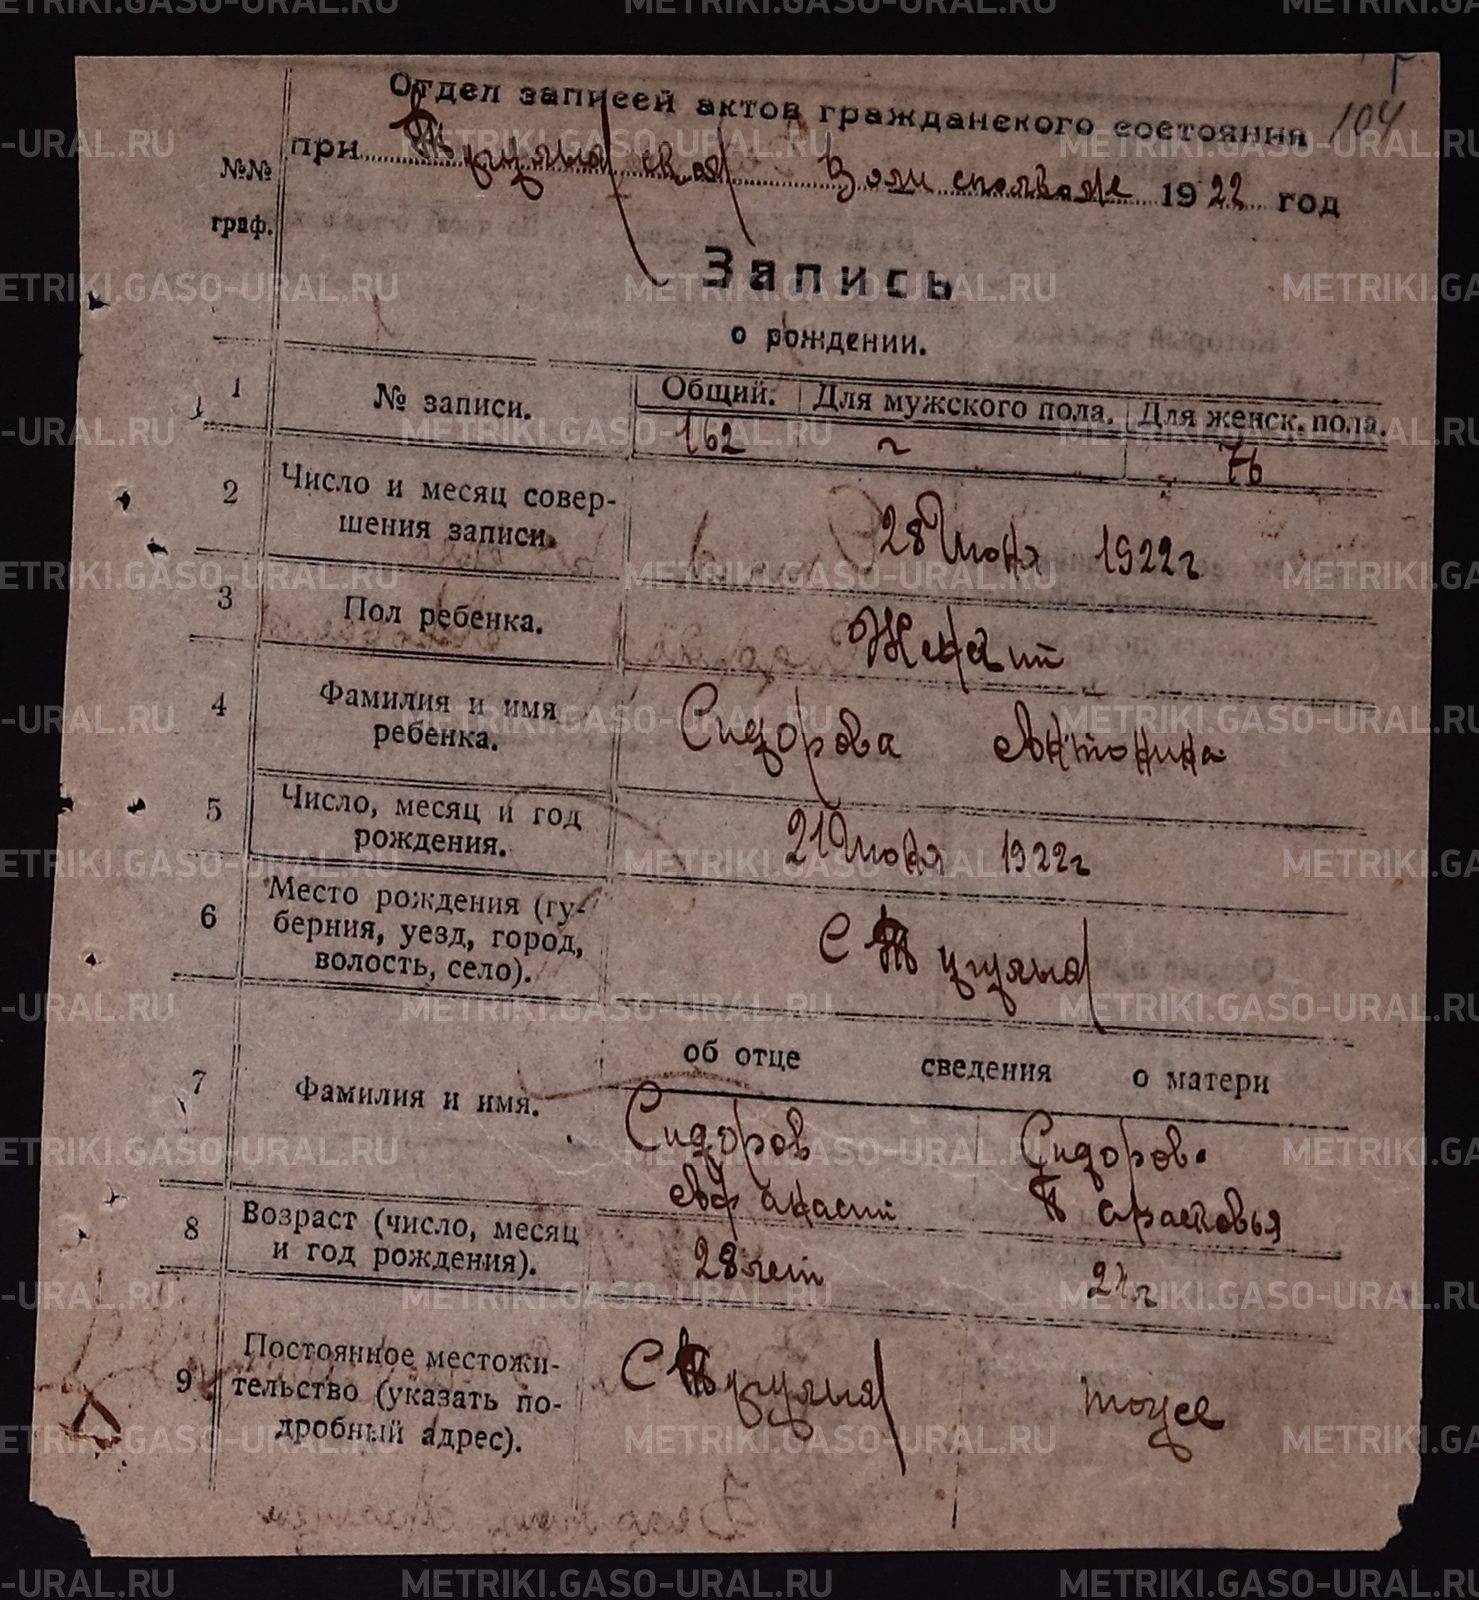 104
Отдел записей актов гражданского состояния
при Тугулым ской Волисполкоме 1922 год
№№
граф.
Запись
о рождении.
1 № записи. Общий. Для мужского пола. Для женск. пола.
162 ~ 76
2 Число и месяц совер-
шения записи. 28 Июня 1922 г
3 Пол ребенка. Женский
4 Фамилия и имя
ребенка. Сидорова Антонина
5 Число, месяц и год
рождения. 21 Июня 1922 г
6 Место рождения (гу-
берния, уезд, город,
волость, село). С
об отце сведения о матери
7 Фамилия и имя. Сидоров Сидорова
Афанасий Парасковья
8 Возраст (число, месяц
и год рождения). 28 лет
9 Постоянное местожи-
тельство (указать по-
дробный адрес). С тоже
METRIKI.GASO-URAL.RU